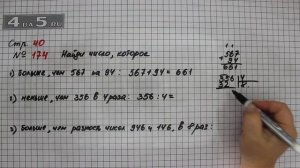 4В5А.RU
Стр. 40
№ 174 Найди число, которое
1) Больше, чем 567 на 94: 567+94 = 661
2) меньше, чем 336 в 4 раза: 336 : 4 =
3) Больше, чем разность чисел 946 и 146, в 8 раз:
567
+ 94
661
336 4
32 8